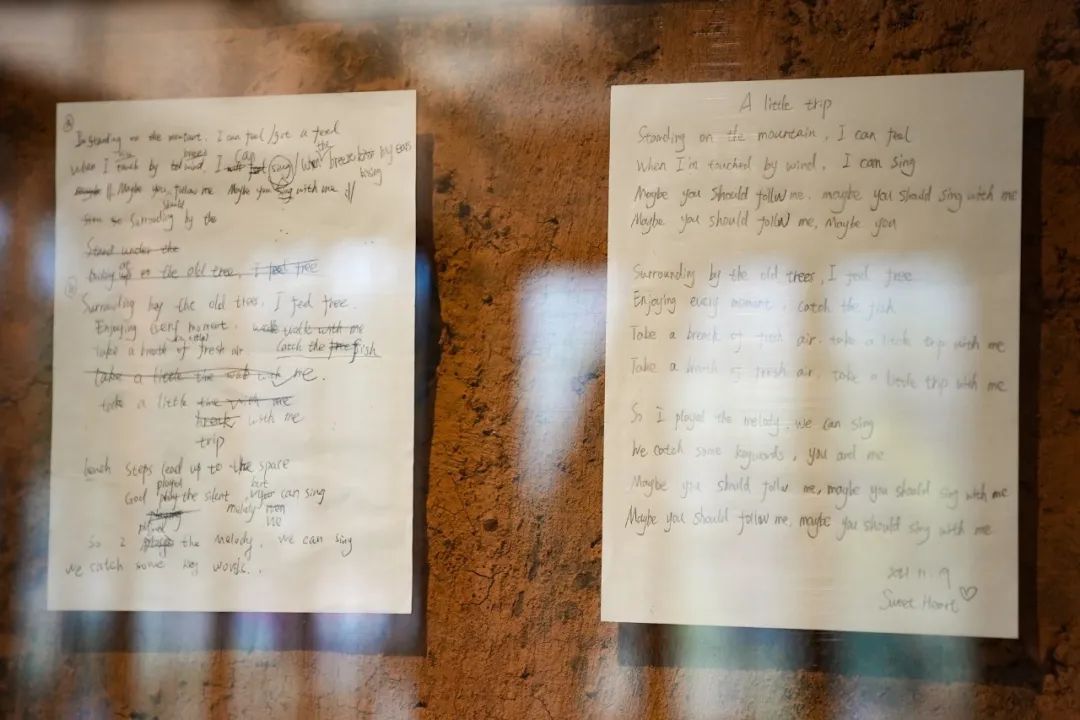 Ⓐ
standing on the mountant. I can feel / got a feed
When I touch by wind, I can sing / When the breeze
Maybe you follow me Maybe you sing with me //
Surrounding by the
should
Stand under the
on the old tree, I feel free
Surrounding by the old trees, I feel free.
Enjoying every moment. walk with me
Take a breath of fresh air. Catch the fish
take a little me.
take a little time with me
break with me
trip
steps lead up to the space
played
God the silent, can sing
melody
we
So I the melody, we can sing
we catch some key words..
A little trip
Standing on the mountain, I can feel
When I'm touched by wind, I can sing
Maybe you should follow me, maybe you should sing with me
Maybe you should follow me, Maybe you
Surrounding by the old trees, I feel free
Enjoying every moment, catch the fish
Take a breack of fresh air. take a little trip with me
Take a breath of fresh air, take a little trip with me
So I played the melody, we can sing
We catch some keywords, you and me
Maybe you should follow me, maybe you should sing with me
Maybe you should follow me, maybe you should sing with me
2021.11.19
Sweet Heart ♡